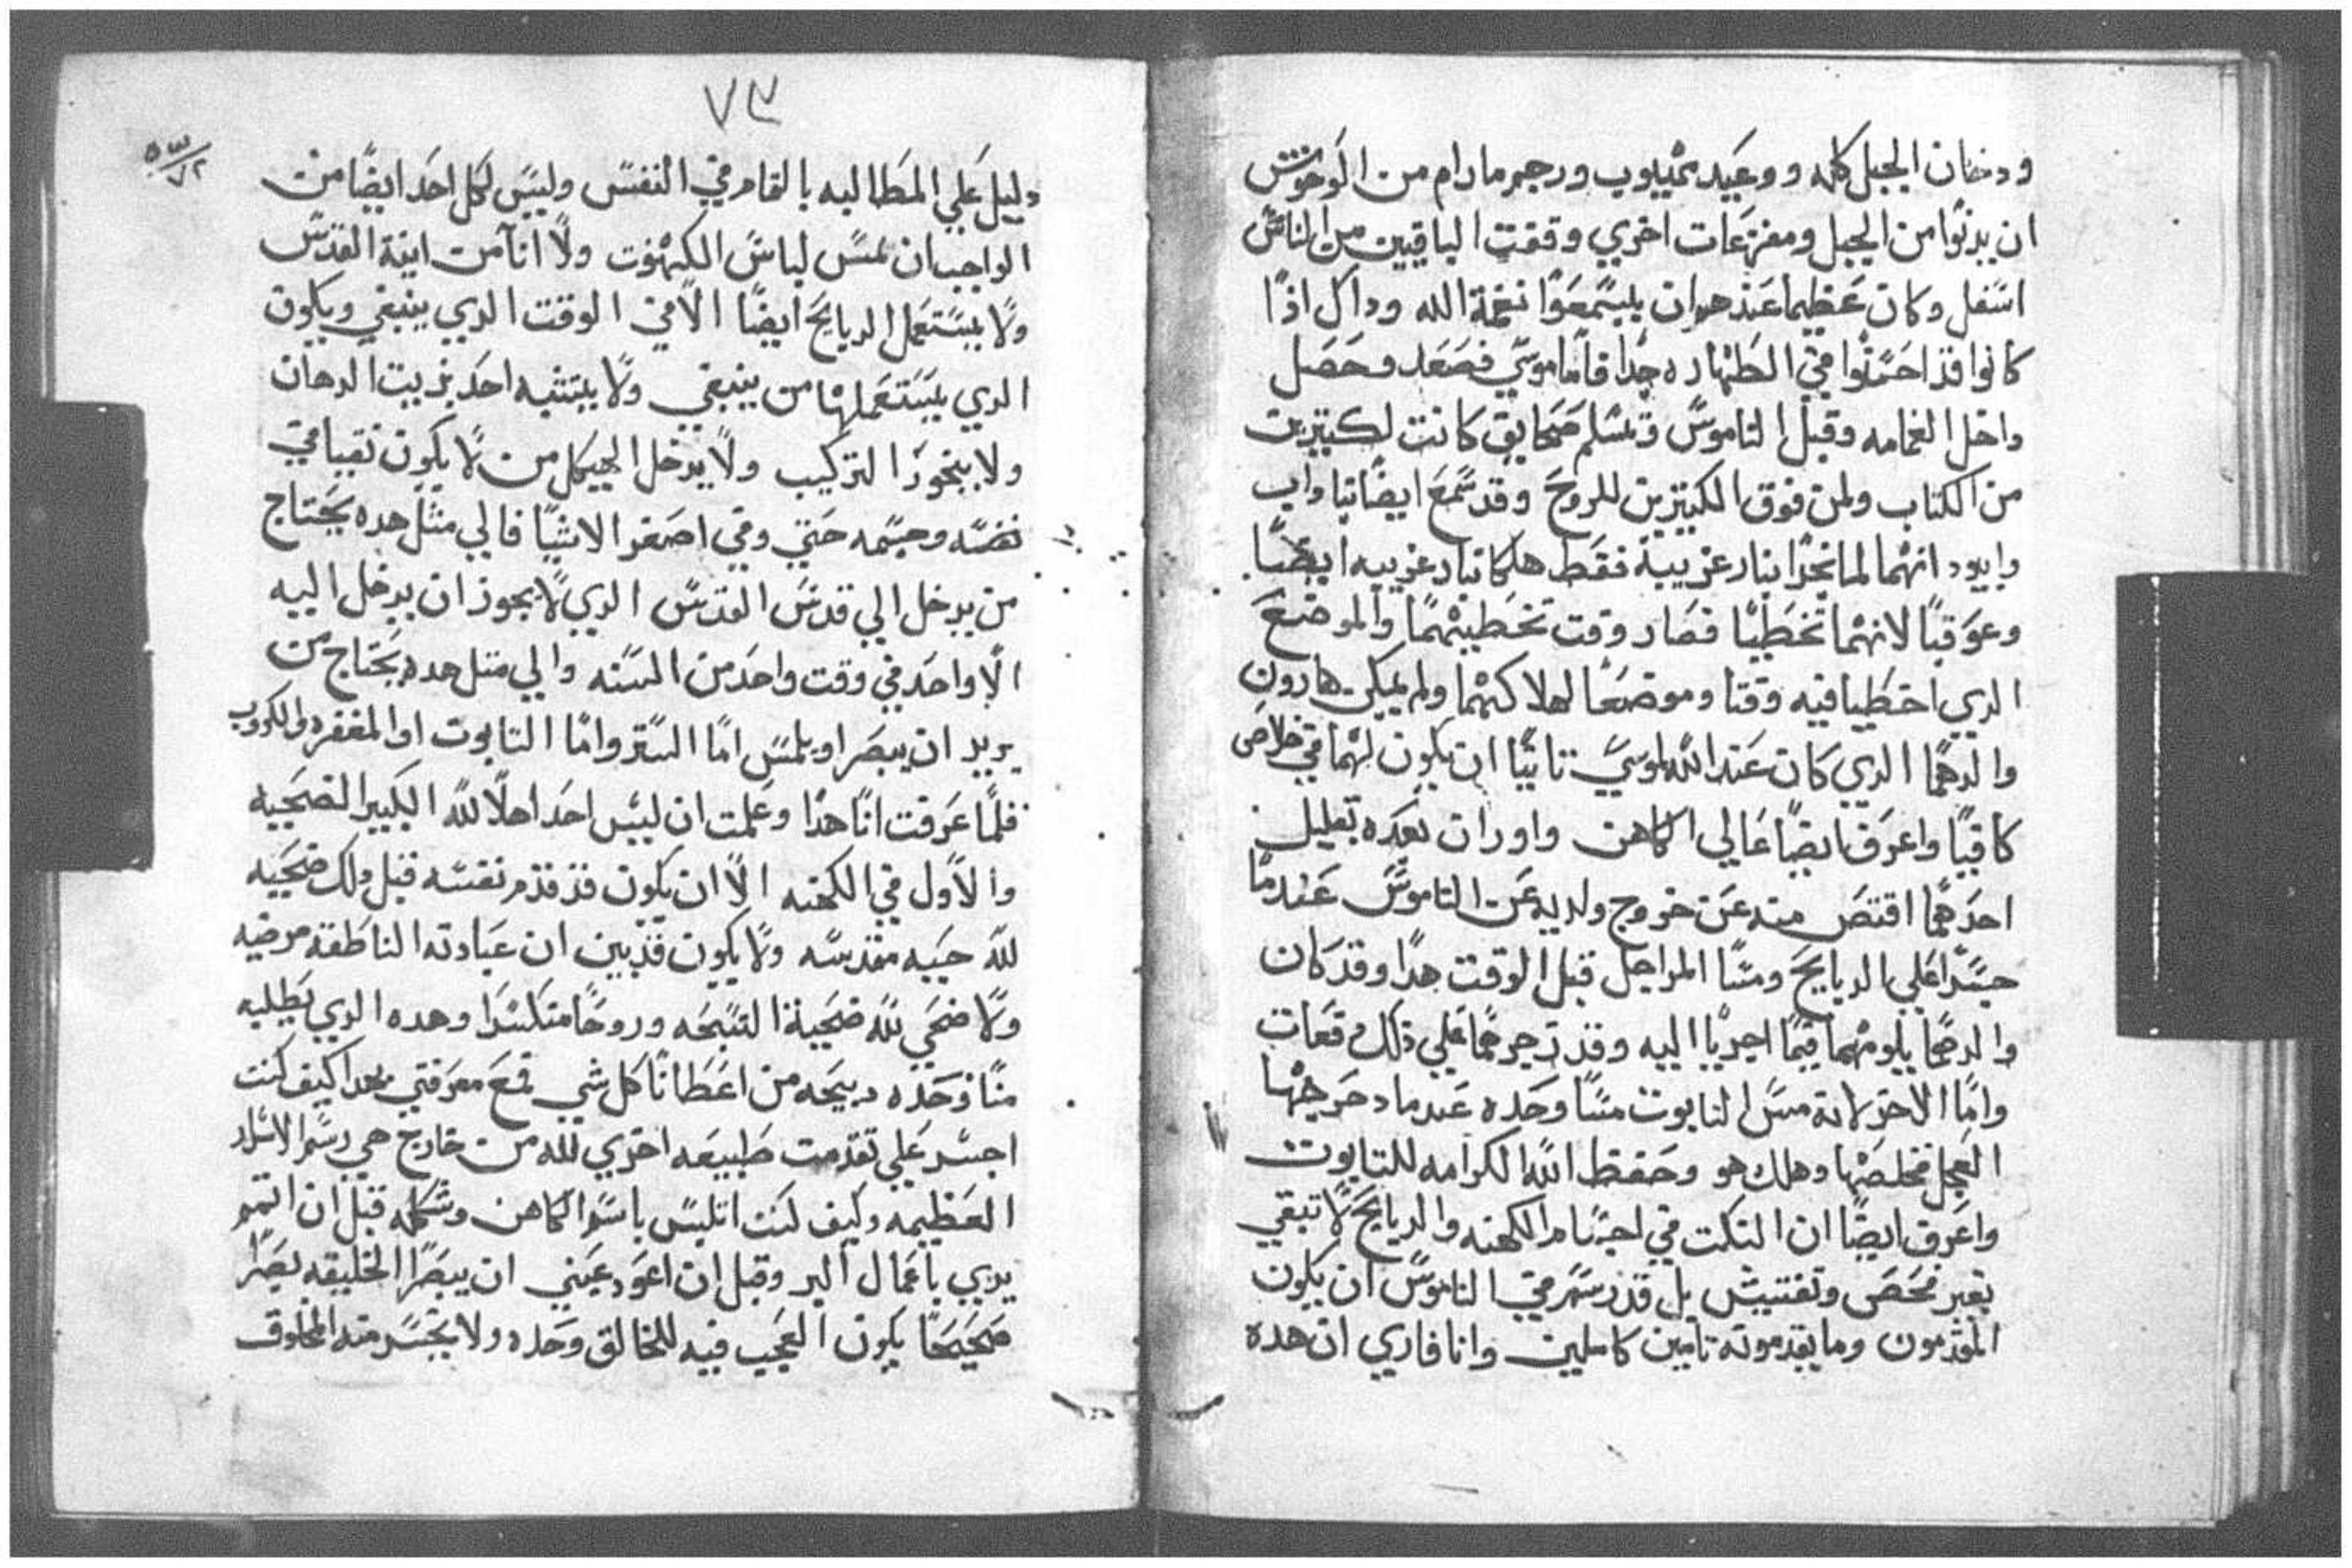 ودخان الجبل كله ووعيد يميبوب ورجم ما رام من الوحوش
ان يدنوا من الجبل ومفزعات اخري وقفت الباقيين من الناس
اسفل وكان عظيما عندهم ان يسمعوا نغمة الله وداك اذا
كانوا قد احتموا في الطهاره جدا فاما موسي فصعد وحصل
داخل الغمامه وقبل الناموس وتسلم صحايف كانت لكتيرين
من الكتاب ولمن فوق الكتيرين للروح وقد سمع ايضا ناداب
وابيود انهما لما بخرا بنار غريبة فقط هلكا بنار غريبه ايضا
وعوقبا لانهما تخطيا فصار وقت تخطيهما والموضع
الدي اخطيا فيه وقتا وموضعا لهلاكهما ولم يمكن هارون
والدهما الدي كان عند الله لموسي تانيا ان يكون لهما في خلاص
كافيا واعرف ايضا عالي الكاهن واوزان بعده بقليل
احدهما اقتص منه عن خروج ولديه عن الناموس عندما
جسرا علي الدبايح ومسا المراجل قبل الوقت هدا وقد كان
والدهما يلومهما فيما اجريا اليه وقد زجرهما علي ذلك دفعات
واما الاخر لانه مس التابوت مسا وحده عندما دحرجها
العجل فخلصها وهلك هو وحفظ الله الكرامه للتابوت
واعرف ايضا ان النكت في اجسام الكهنه والدبايح لا تبقي
بغير فحص وتفتيش بل قد رسم في الناموس ان يكون
المقدمون وما يقدمونه تامين كاملين وانا فاري ان هده
٧٣
دليل علي المطالبه بالتمام في النفس وليس لكل احد ايضا من
الواجب ان يلمس لباس الكهنوت ولا انا من انية القدس
ولا يستعمل الدبايح ايضا الا في الوقت الدي ينبغي ويكون
الدي يستعملها من ينبغي ولا يتشبه احد بزيت الدهان
ولا ببخور التركيب ولا يدخل الهيكل من لا يكون نقيا في
نفسه وجسمه حتي وفي اصغر الاشيا فالي مثل هده يحتاج
من يدخل الي قدس القدس الدي لا يجوز ان يدخل اليه
الا واحد في وقت واحد من السنه والي متل هده يحتاج من
يريد ان يبصر او يلمس اما الستر واما التابوت او المغفره والكروب
فلما عرفت انا هدا وعلمت ان ليس احد اهلا لله الكبير الضحيه
والاول في الكهنه الا ان يكون قد قدم نفسه قبل دلك ضحيه
لله حييه مقدسه ولا يكون قد بين ان عبادته الناطقة مرضيه
ولا ضحي لله ضحية التسبحه وروحا متكسرا وهده الدي يطلبه
منا وحده دبيحه من اعطانا كل شي فمع معرفتي بهدا كيف كنت
اجسر علي تقدمت طبيعه اخري لله من خارج هي رسم الاسرار
العظيمه وكيف كنت اتلبس باسم الكاهن وشكله قبل ان اتمم
يدي باعمال البر وقبل ان اعود عيني ان يبصرا الخليقه بصرا
صحيحا يكون العجب فيه للخالق وحده ولا يتجسر منه المخلوق